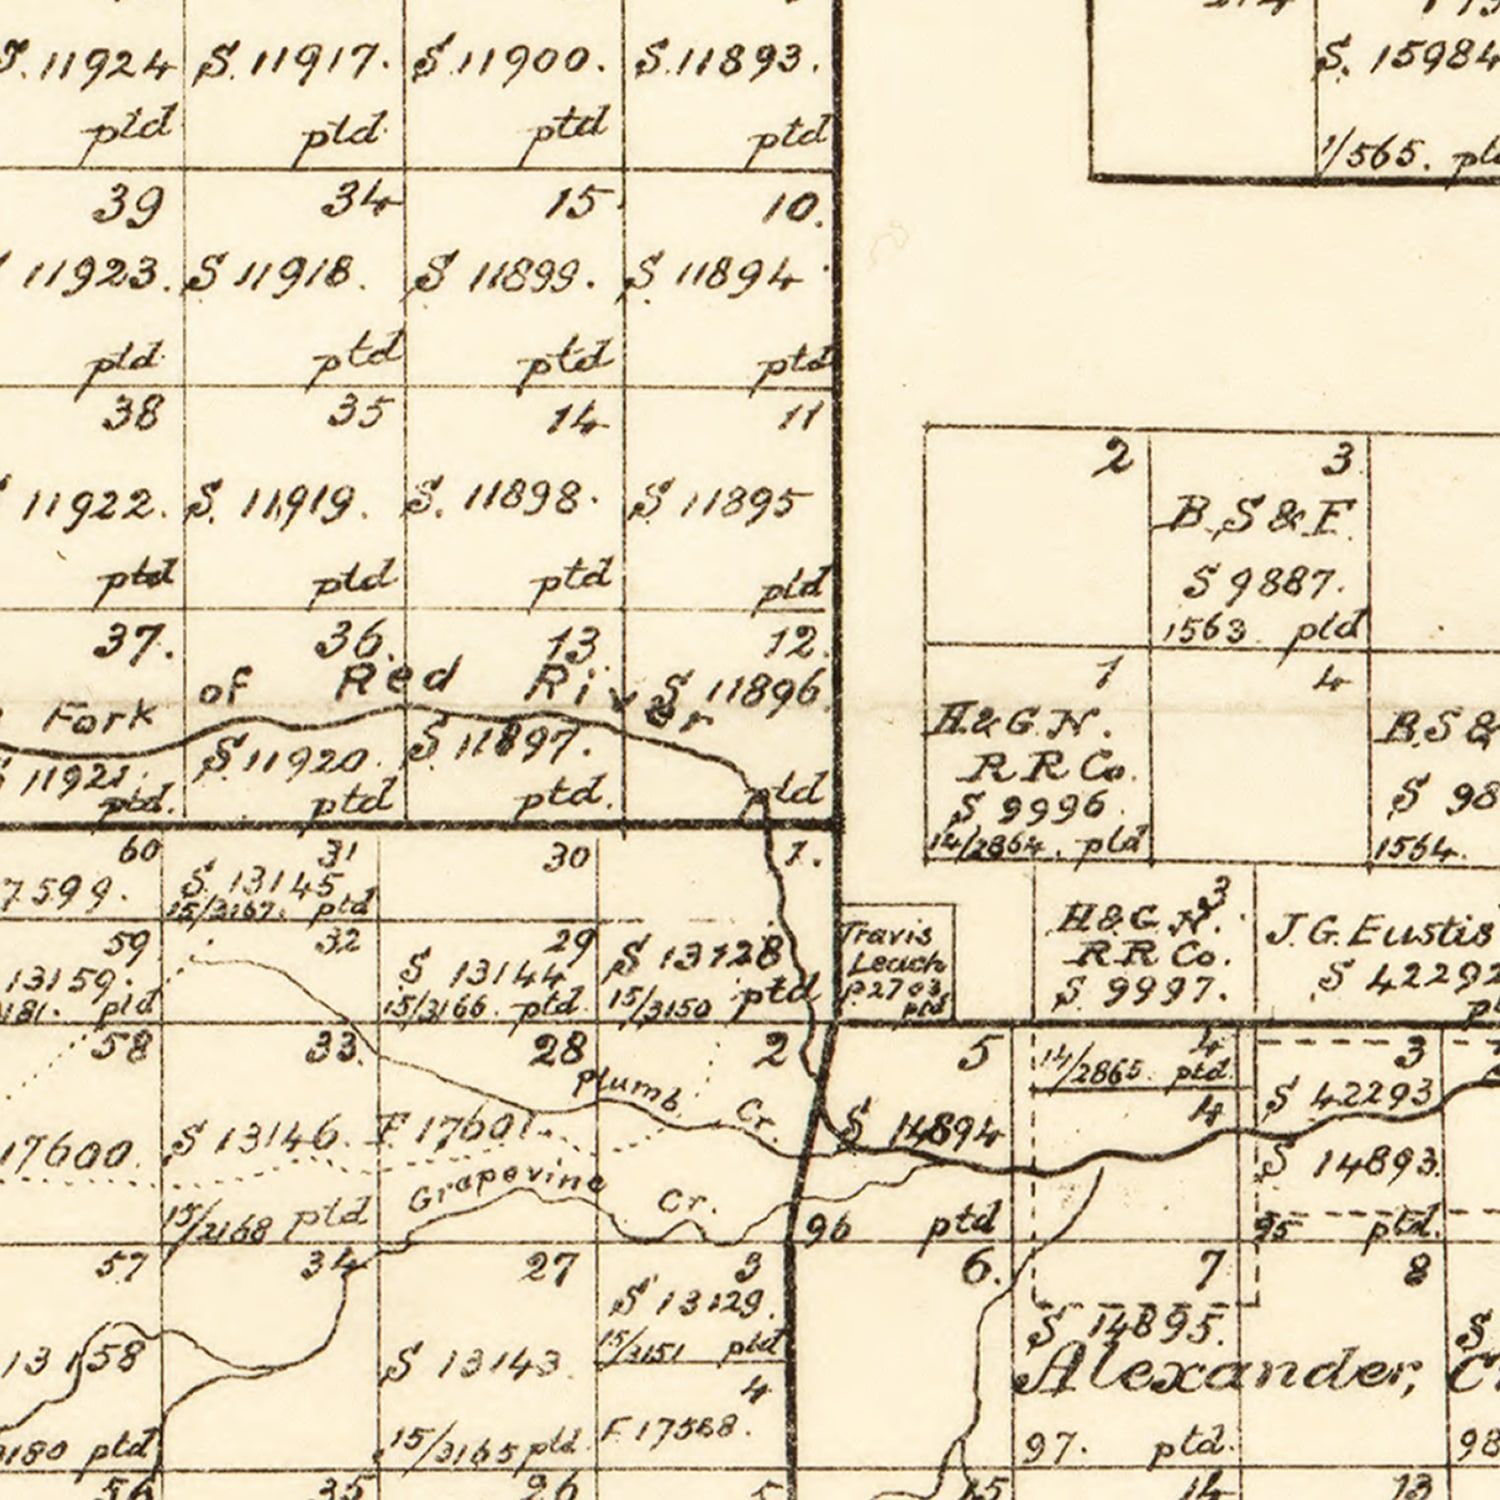 S. 11924 S. 11917. S. 11900. S. 11893.
ptd ptd ptd ptd
S. 15984
1/565. ptd
39 34 15 10.
11923. S 11918. S 11899. S 11894
ptd ptd ptd ptd
38 35 14 11
11922. S. 11919. S. 11898. S 11895
ptd ptd ptd ptd
37. 36. 13 12.
Fork of Red River S 11896
S 11921. S. 11920. S 11897.
ptd. ptd ptd. ptd
2 3
B.S & F.
S 9887.
1563 ptd
1 4
H.& G.N.
R R Co.
S 9996.
14/2864. ptd
B.S &
S 98
1564.
60 31 30 1.
7599. S. 13145
15/3167. ptd
59 32 29
13159. S 13144 S 13128
181. ptd 15/3166. ptd. 15/3150 ptd
Travis
Leach
P 2703
ptd
3
H & G. N.
R R Co.
S. 9997.
J. G. Eustis
S 42292
58 33. 28 2
Plumb Cr.
17600. S 13146. F. 17601.
Grapevine Cr.
15/3168 ptd
5 4 3
14/2865 ptd.
4
S 42293
S 14894
S 14893.
96 ptd 95 ptd.
57 34 27 3
S 13129.
15/3151 ptd
13158 S 13143.
4
F. 17588.
3180 ptd 15/3165 ptd.
6. 7 8
S 14895. S
Alexander, C
97. ptd. 98
56 35 26 5 15 14 13